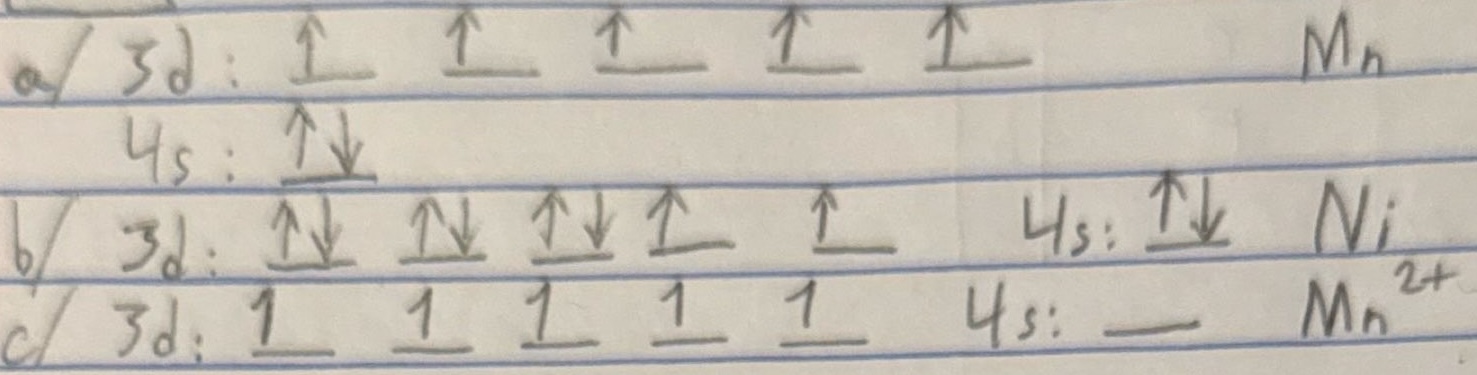 a/ 3d: ↑ ↑ ↑ ↑ ↑ Mn
4s: ↑↓
b/ 3d: ↑↓ ↑↓ ↑↓ ↑ ↑ 4s: ↑↓ Ni
c/ 3d: 1 1 1 1 1 4s: __ Mn²⁺